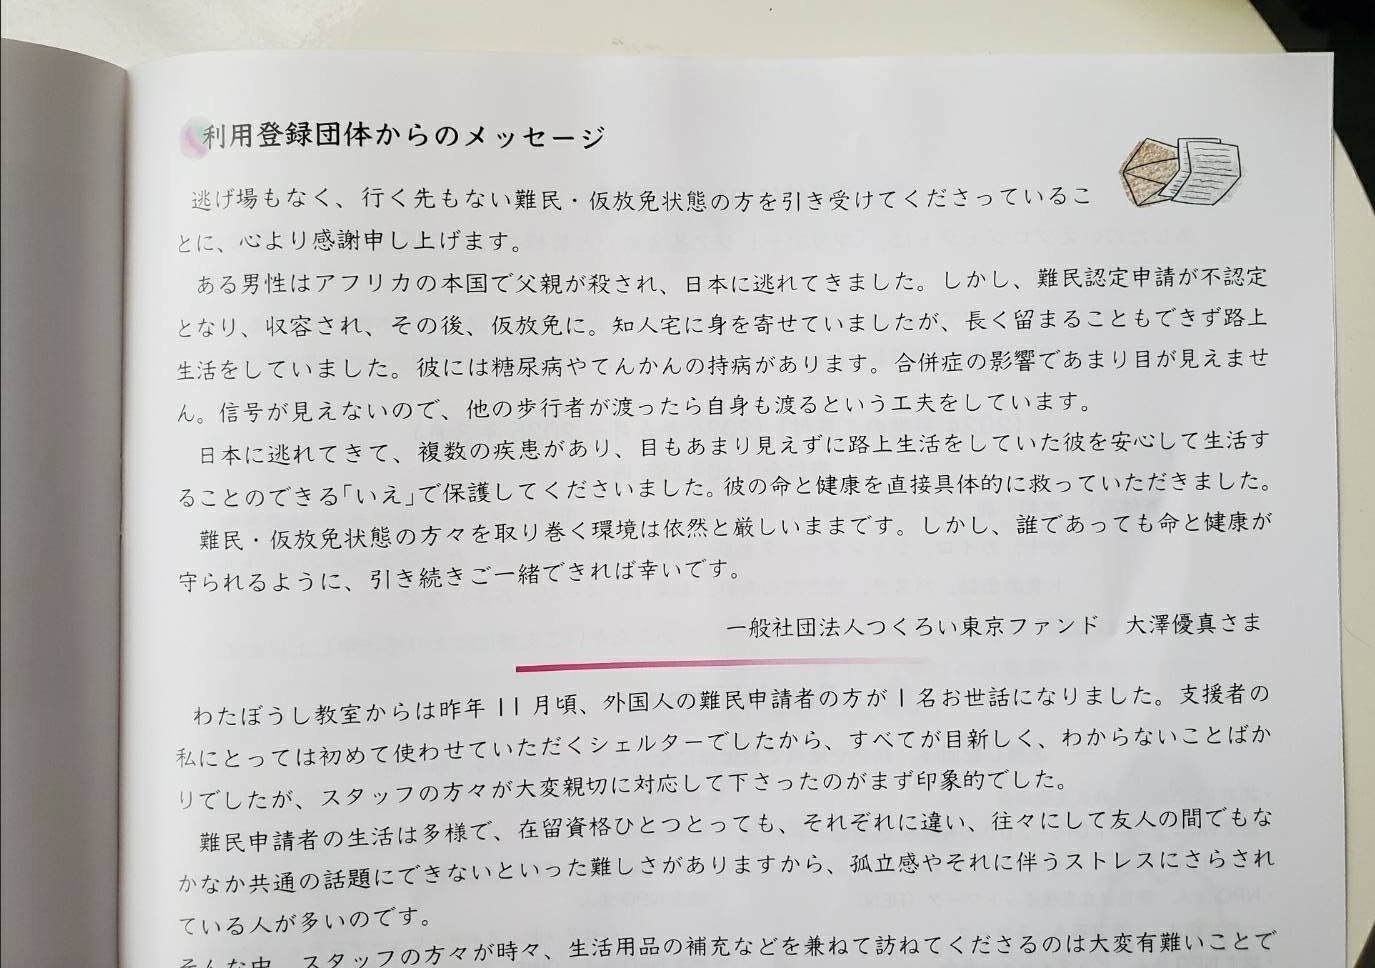 利用登録団体からのメッセージ
逃げ場もなく、行く先もない難民・仮放免状態の方を引き受けてくださっているこ
とに、心より感謝申し上げます。
ある男性はアフリカの本国で父親が殺され、日本に逃れてきました。しかし、難民認定申請が不認定
となり、収容され、その後、仮放免に。知人宅に身を寄せていましたが、長く留まることもできず路上
生活をしていました。彼には糖尿病やてんかんの持病があります。合併症の影響であまり目が見えませ
ん。信号が見えないので、他の歩行者が渡ったら自身も渡るという工夫をしています。
日本に逃れてきて、複数の疾患があり、目もあまり見えずに路上生活をしていた彼を安心して生活す
ることのできる「いえ」で保護してくださいました。彼の命と健康を直接具体的に救っていただきました。
難民・仮放免状態の方々を取り巻く環境は依然と厳しいままです。しかし、誰であっても命と健康が
守られるように、引き続きご一緒できれば幸いです。
一般社団法人つくろい東京ファンド　大澤優真さま
わたぼうし教室からは昨年 11 月頃、外国人の難民申請者の方が 1 名お世話になりました。支援者の
私にとっては初めて使わせていただくシェルターでしたから、すべてが目新しく、わからないことばか
りでしたが、スタッフの方々が大変親切に対応して下さったのがまず印象的でした。
難民申請者の生活は多様で、在留資格ひとつとっても、それぞれに違い、往々にして友人の間でもな
かなか共通の話題にできないといった難しさがありますから、孤立感やそれに伴うストレスにさらされ
ている人が多いのです。
そんな中、スタッフの方々が時々、生活用品の補充などを兼ねて訪ねてくださるのは大変有難いことで